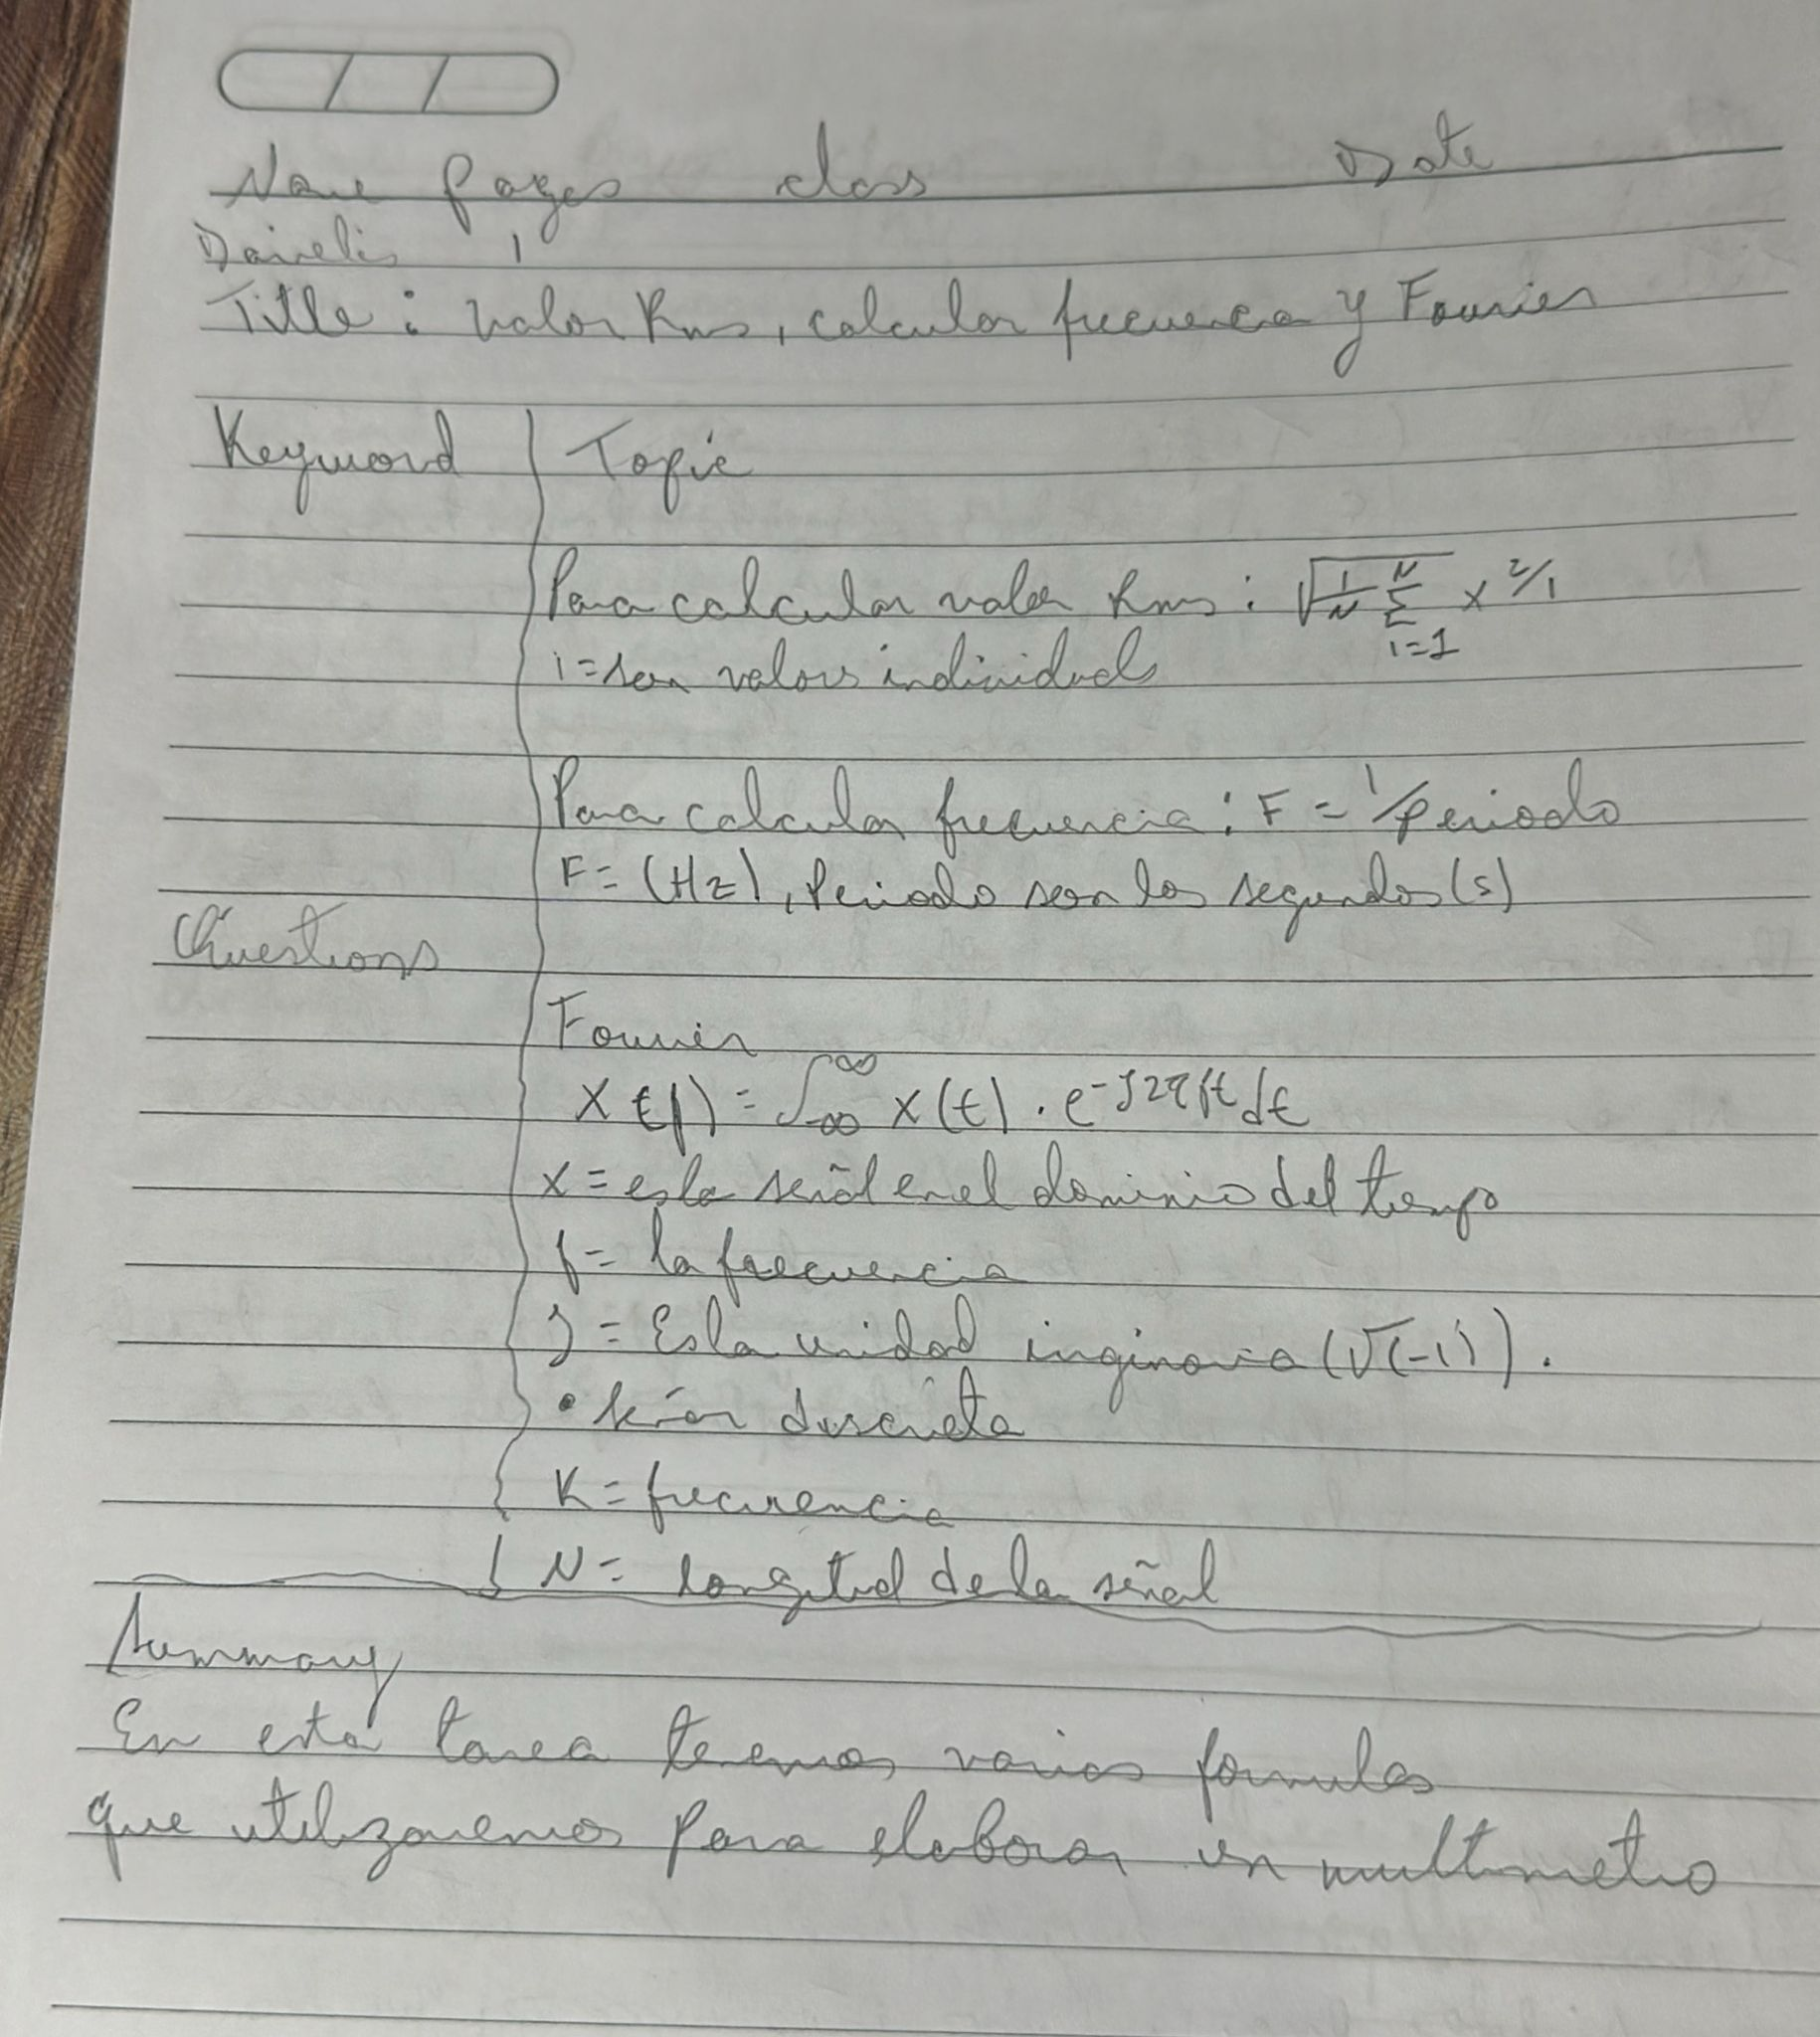 Name pages class Date
Danelis 1
Title: valor Rms, calcular frecuencia y Fourier
Keyword Topic
Para calcular valor Rms: √1/N N Σ i=1 x 2/1
i=son valors individual
Para calcular frecuencia: F = 1/periodo
F= (Hz), Periodo son los segundos (s)
Questions
Fourier
X(f) = ∫-∞ ∞ x(t) . e-j2πft dt
x = es la señal en el dominio del tiempo
f = la frecuencia
J = Es la unidad inginaria (√(-1)).
• discreta
K = frecuencia
N = longitud de la señal
Summary
En esta tarea tenemos varias formulas
que utilizaremos para elaborar un multimetro